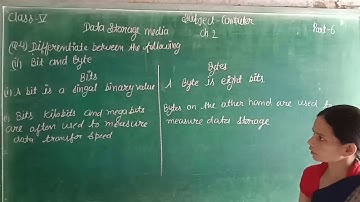 Class-V
Subject-Computer
Data Storage media
Ch 2
Part-6
(Q.4) Differentiate between the following
(ii) Bit and Byte
Bits
Bytes
(i) A bit is a singal binary value
A Byte is eight bits.
Bits Kilobits and megabits
are often used to measure
data transfer speed
Bytes on the other hand are used to
measure data storage